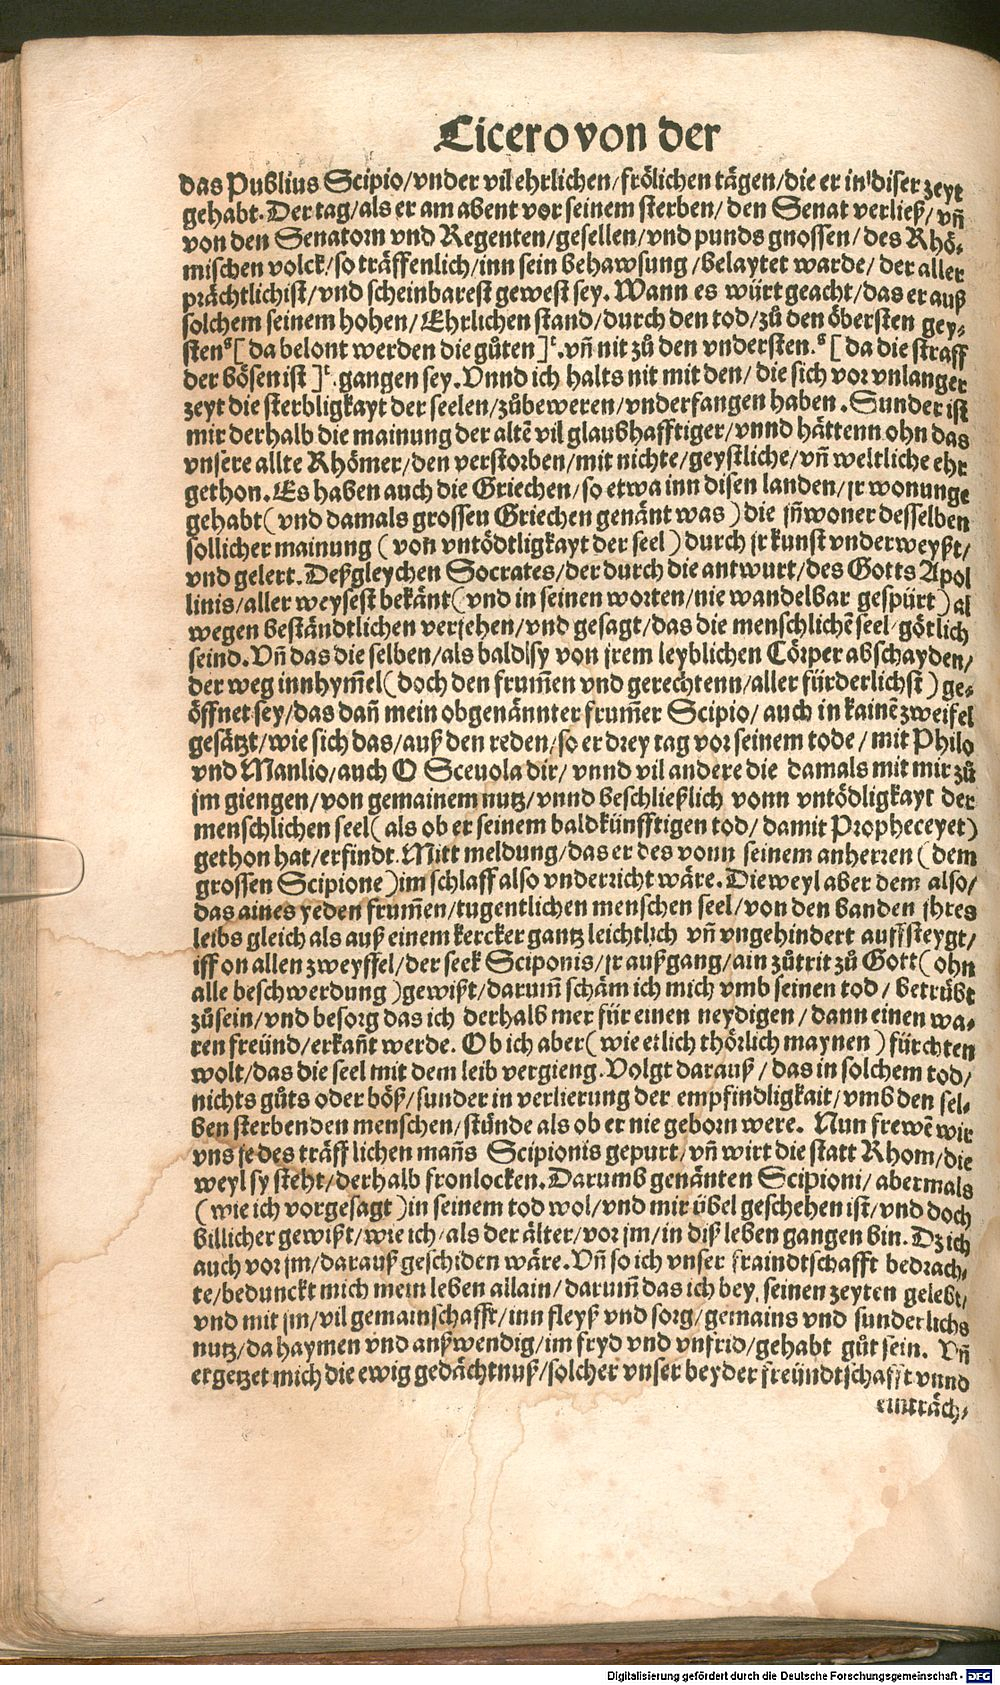 Cicero von der
das Publius Scipio/vnder vil ehrlichen/frölichen tägen/die er in diser zeyt
gehabt. Der tag/als er am abent vor seinem sterben/den Senat verließ/vn̄
von den Senatorn vnd Regenten/gesellen/vnd punds gnossen/des Rhö-
mischen volck/so träffenlich/inn sein behawsung/belaytet warde/der aller
prächtlichist/vnd scheinbarest gewest sey. Wann es würt geacht/das er auß
solchem seinem hohen/Ehrlichen stand/durch den tod/zů den öbersten gey-
stenˢ[da belont werden die gůten]ᵗ.vn̄ nit zů den vndersten.ˢ[da die straff
der bösen ist]ᵗ.gangen sey. Vnnd ich halts nit mit den/die sich vor vnlanger
zeyt die sterbligkayt der seelen/zůbeweren/vnderfangen haben. Sunder ist
mir derhalb die mainung der altē vil glaubhafftiger/vnnd hättenn ohn das
vnsere allte Rhömer/den verstorben/mit nichte/geystliche/vn̄ weltliche ehr
gethon. Es haben auch die Griechen/so etwa inn disen landen/jr wonunge
gehabt(vnd damals grossen Griechen genänt was)die jn̄woner desselben
sollicher mainung (von vntödtligkayt der seel)durch jr kunst vnderweyßt/
vnd gelert. Deßgleychen Socrates/der durch die antwurt/des Gotts Apol
linis/aller weysest bekänt(vnd in seinen worten/nie wandelbar gespürt)al
wegen beständtlichen verjehen/vnd gesagt/das die menschlichē seel götlich
seind. Vn̄ das die selben/als bald sy von jrem leyblichen Cörper abschayden/
der weg inn hym̄el(doch den frum̄en vnd gerechtenn/aller fürderlichst)ge-
öffnet sey/das dan̄ mein obgenännter frum̄er Scipio/auch in kainē zweifel
gesätzt/wie sich das/auß den reden/so er drey tag vor seinem tode/mit Philo
vnd Manlio/auch O Sceuola dir/vnnd vil andere die damals mit mir zů
jm giengen/von gemainem nutz/vnnd beschließlich vonn vntödligkayt der
menschlichen seel(als ob er seinem baldkünfftigen tod/damit Propheceyet)
gethon hat/erfindt. Mitt meldung/das er des vonn seinem anherren (dem
grossen Scipione)im schlaff also vnderricht wäre. Die weyl aber dem also/
das aines yeden frum̄en/tugentlichen menschen seel/von den banden jhres
leibs gleich als auß einem kercker gantz leichtlich vn̄ vngehindert auff steygt/
iff on allen zweyffel/der seek Sciponis/jr außgang/ain zůtrit zů Gott(ohn
alle beschwerdung)gewißt/darum̄ schäm ich mich vmb seinen tod/betrübt
zůsein/vnd besorg das ich derhalb mer für einen neydigen/dann einen wa-
ren freünd/erkan̄t werde. Ob ich aber(wie etlich thörlich maynen)fürchten
wolt/das die seel mit dem leib vergieng. Volgt darauß/das in solchem tod/
nichts gůts oder böß/sunder in verlierung der empfindligkait/vmb den sel-
ben sterbenden menschen/stünde als ob er nie geborn were. Nun frewē wir
vns je des träfflichen man̄s Scipionis gepurt/vn̄ wirt die statt Rhom/die
weyl sy steht/derhalb fronlocken. Darumb genänten Scipioni/abermals
(wie ich vorgesagt)in seinem tod wol/vnd mir übel geschehen ist/vnd doch
billicher gewißt/wie ich/als der älter/vor jm/in diß leben gangen bin. Dz ich
auch vor jm/darauß geschiden wäre. Vn̄ so ich vnser fraindtschafft bedrach-
te/bedunckt mich mein leben allain/darum̄ das ich bey seinen zeyten gelebt/
vnd mit jm/vil gemainschafft/inn fleyß vnd sorg/gemains vnd sunderlichs
nutz/da haymen vnd außwendig/im fryd vnd vnfrid/gehabt gůt sein. Vn̄
ergetzet mich die ewig gedächtnuß/solcher vnser beyder freündtschafft vnnd
einträch-
Digitalisierung gefördert durch die Deutsche Forschungsgemeinschaft - DFG